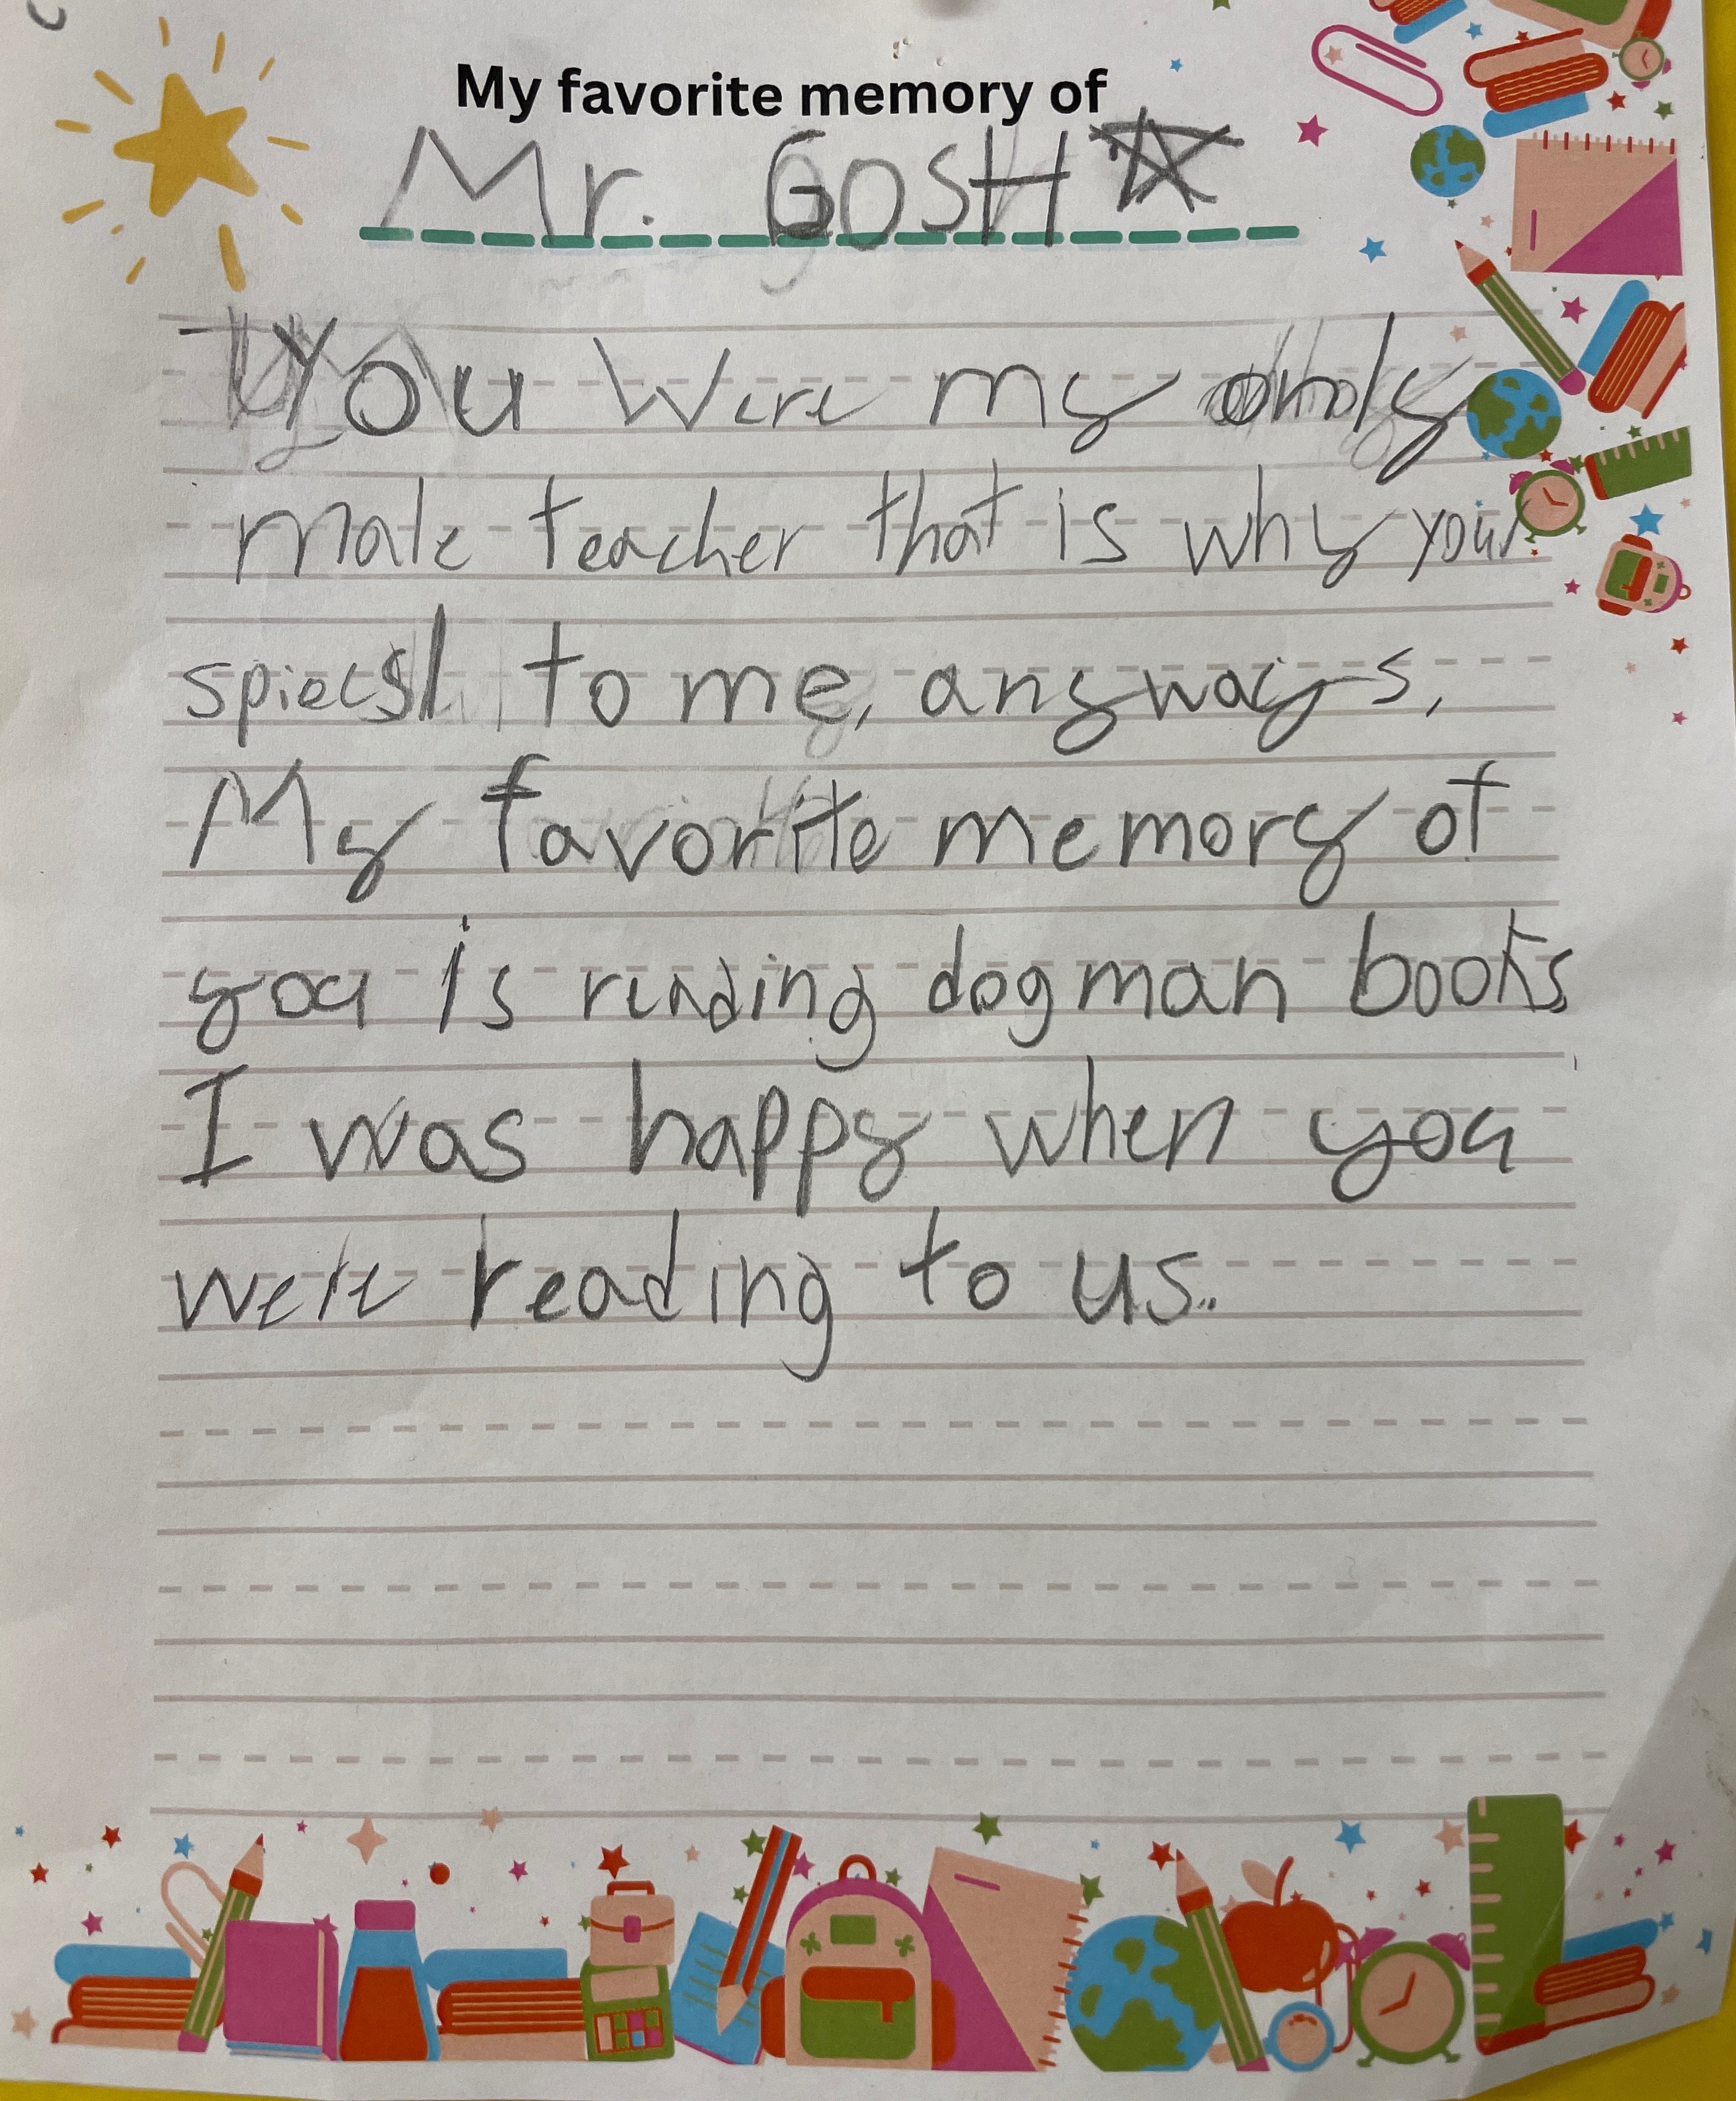 My favorite memory of
Mr. GOSH
You Were my only
male teacher that is why your
spiecsl to me, anyways,
My favorite memory of
you is reading dogman books
I was happy when you
were reading to us.